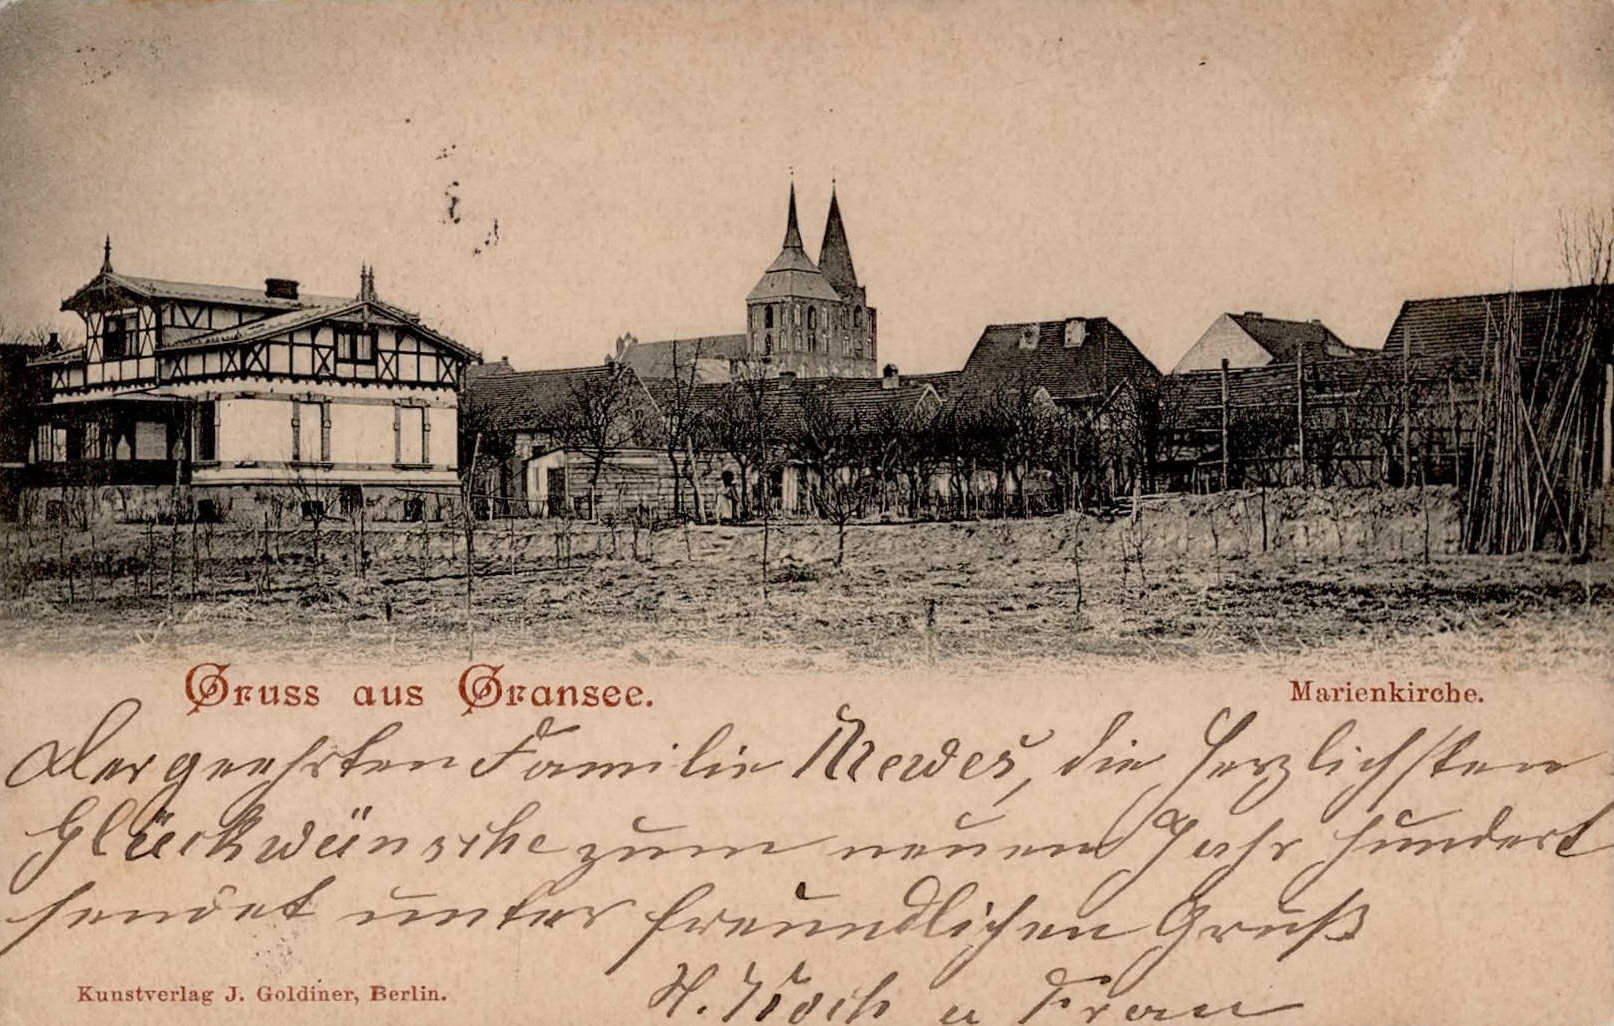 Gruss aus Gransee.
Marienkirche.
Der geehrten Familie Mewes, die herzlichsten
Glückwünsche zum neuen Jahrhundert
sendet unter freundlichen Gruß
H. Koch u Frau
Kunstverlag J. Goldiner, Berlin.